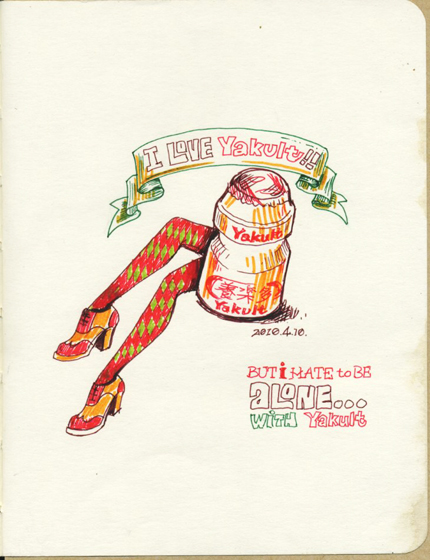 I LOVE Yakult!!
Yakult
養楽多
Yakult
2010.4.10.
BUT i HATE to BE
ALONE...
WITH Yakult